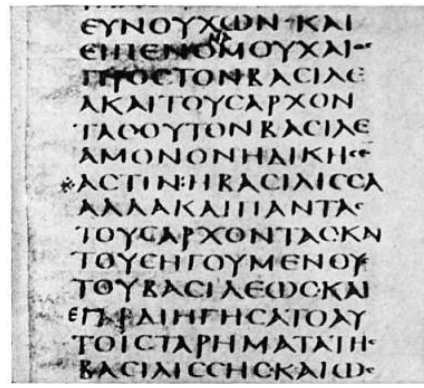 ΕΥΝΟΥΧΩΝ· ΚΑΙ
ΕΙΠΕΝΟΜΟΥΧΑΙΟϹ
ΠΡΟϹΤΟΝΒΑϹΙΛΕ
ΑΚΑΙΤΟΥϹΑΡΧΟΝ
ΤΑϹΟΥΤΟΝΒΑϹΙΛΕ
ΑΜΟΝΟΝΗΔΙΚΗϹΕ
ΑϹΤΙΝ:ΗΒΑϹΙΛΙϹϹΑ
ΑΛΛΑΚΑΙΠΑΝΤΑϹ
ΤΟΥϹΑΡΧΟΝΤΑϹΚΝ
ΤΟΥϹΗΓΟΥΜΕΝΟΥϹ
ΤΟΥΒΑϹΙΛΕΩϹ·ΚΑΙ
ΔΙΗΓΗϹΑΤΟΑΥ
ΤΟΙϹΤΑΡΗΜΑΤΑΤΗϹ
ΒΑϹΙΛΙϹϹΗϹ·ΚΑΙΩϹ